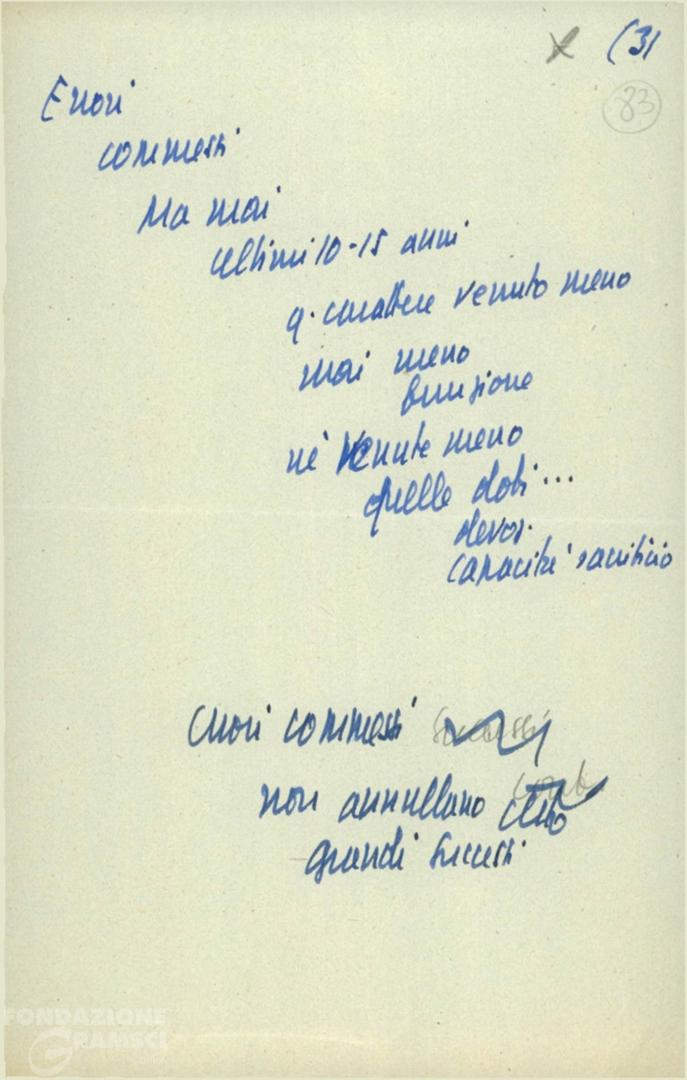 (31
83
Errori
commessi
Ma mai
ultimi 10-15 anni
q. carattere venuto meno
mai meno
funzione
né venute meno
quelle doti...
devoz.
capacità sacrificio
errori commessi
non annullano
grandi successi
FONDAZIONE
GRAMSCI